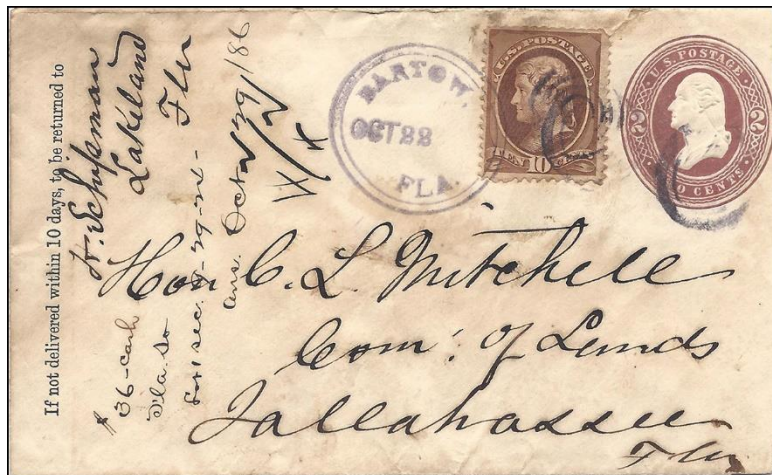 If not delivered within 10 days, to be returned to
W. Schipman
Lakeland
Fla
$36-cash
Fla. So
sec.
Ans. Oct 29/86
BARTOW.
OCT 22
FLA.
U.S. POSTAGE.
TEN 10 CENTS
U.S. POSTAGE
2 2
TWO CENTS
Hon C. L Mitchell
Com: of Lands
Tallahassee
Fla